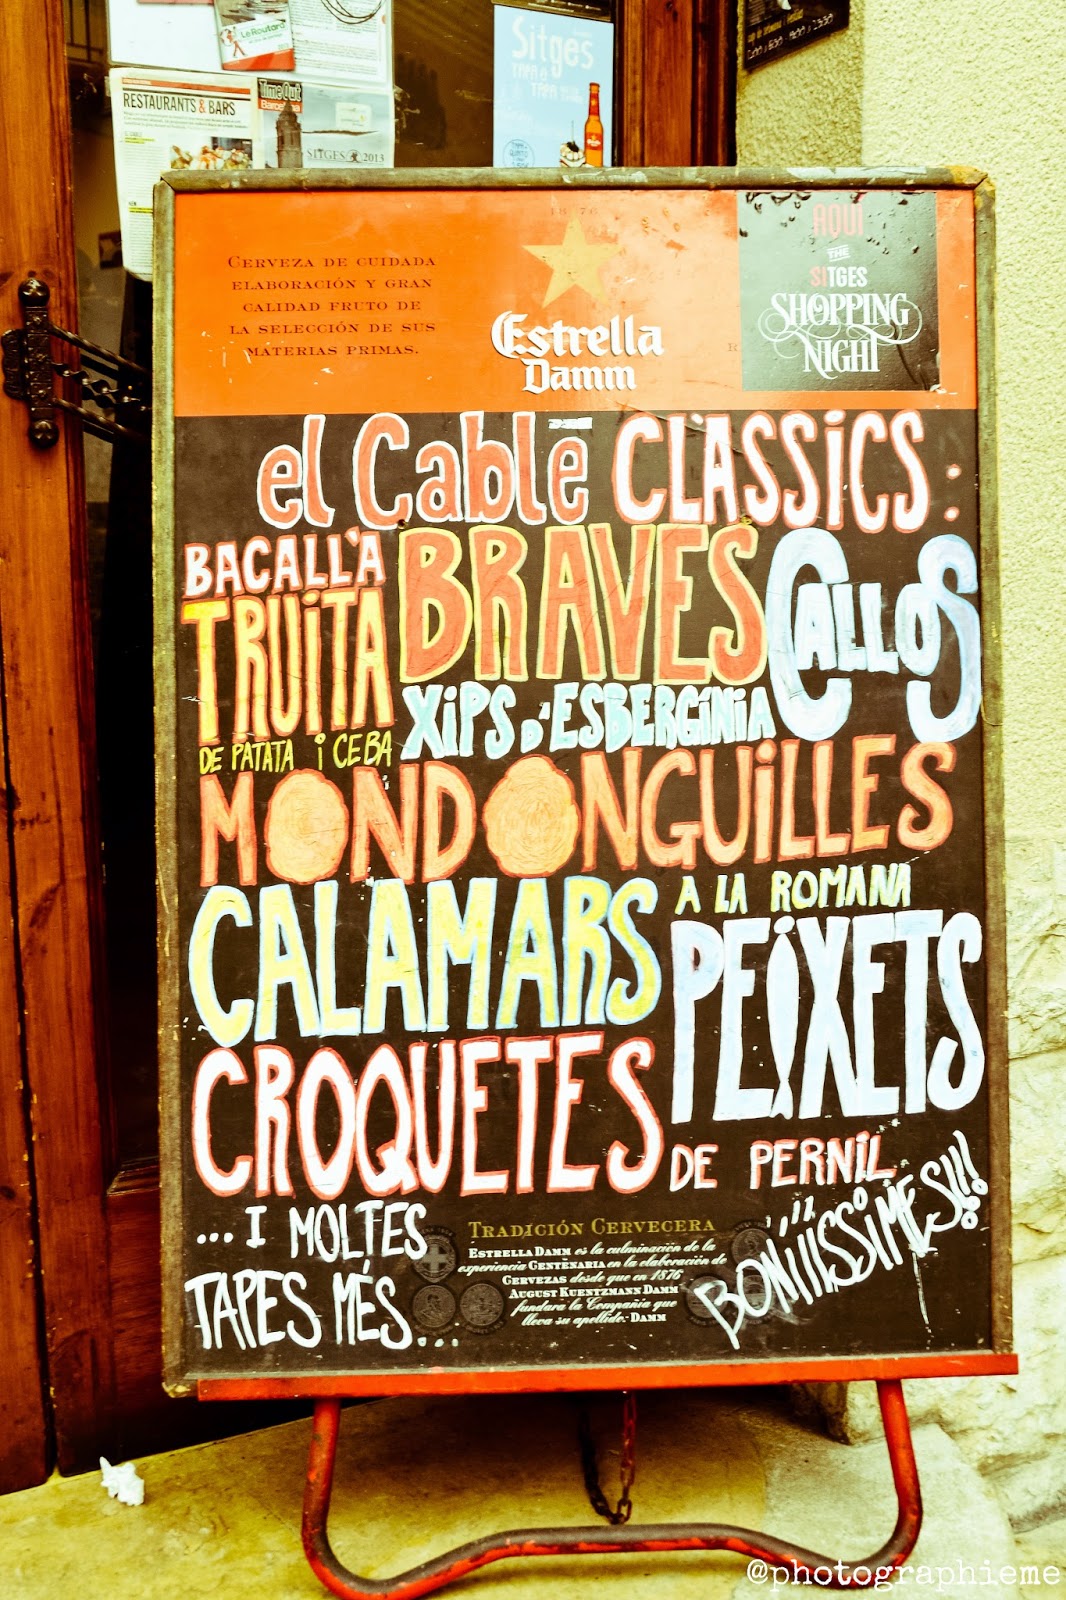 Le Routard
RESTAURANTS & BARS
Time Out
Barcelona
SITGES 2013
Sitges
TAPA A
TAPA
1876
CERVEZA DE CUIDADA
ELABORACIÓN Y GRAN
CALIDAD FRUTO DE
LA SELECCIÓN DE SUS
MATERIAS PRIMAS.
Estrella
Damm
AQUÍ
THE
SITGES
SHOPPING
NIGHT
el Cable CLASSICS:
BACALLÀ
BRAVES
CALLOS
TRUITA
DE PATATA I CEBA
XIPS D'ESBERGÍNIA
MONDONGUILLES
CALAMARS A LA ROMANA
PEIXETS
CROQUETES DE PERNIL
... I MOLTES
TAPES MÉS...
BONÍÍÍÍSSIMES!!!
TRADICIÓN CERVECERA
ESTRELLA DAMM es la culminación de la
experiencia CENTENARIA en la elaboración de
CERVEZAS desde que en 1876
AUGUST KUENTZMANN DAMM
fundara la Compañía que
lleva su apellido: DAMM
@photographieme